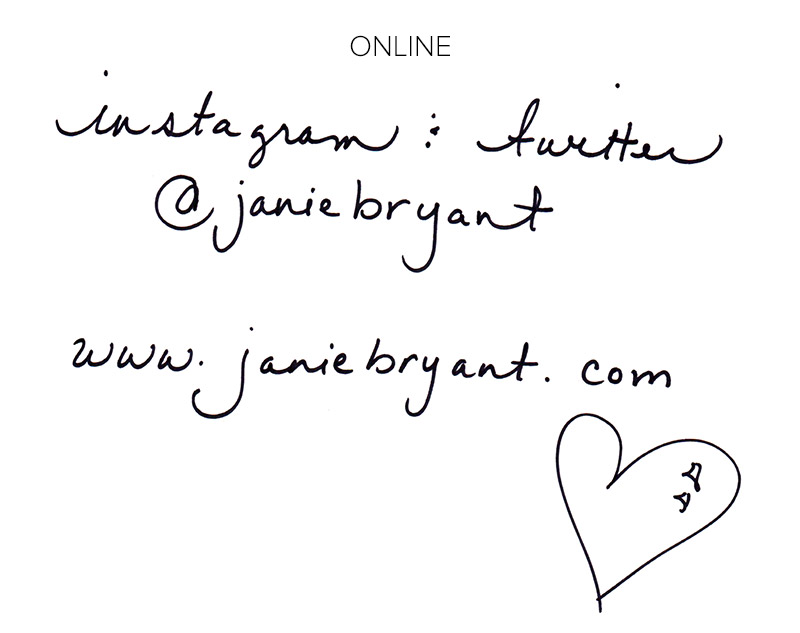 ONLINE
instagram : twitter
@janiebryant
www.janiebryant.com